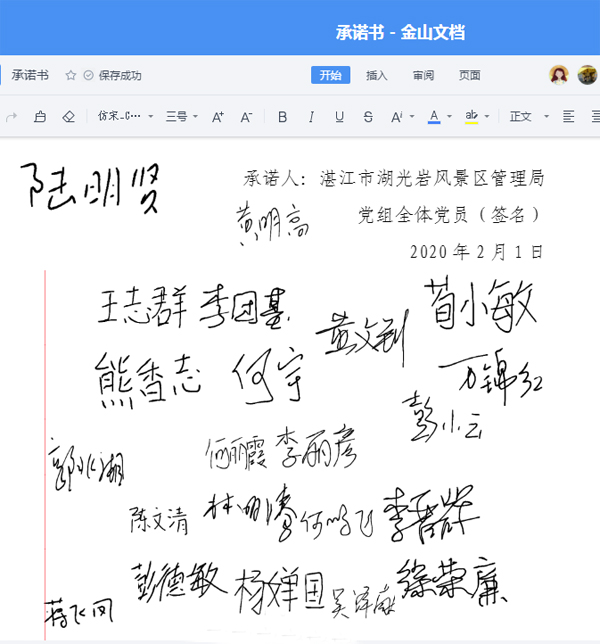 承诺书 - 金山文档
承诺书 保存成功 开始 插入 审阅 页面
仿宋_G… 三号 A+ A- B I U S A A ab 正文
陆明贤
承诺人：湛江市湖光岩风景区管理局
黄明高 党组全体党员（签名）
2020年2月1日
王志群 李团基 黄文钊 荀小敏
熊香志 何宇 万锦红
彭小云
郭水湖 何丽霞 李丽彦
陈文清 林明涛 何鸣飞 李晋群
彭德敏 杨婵国 徐荣廉
蒋飞凤